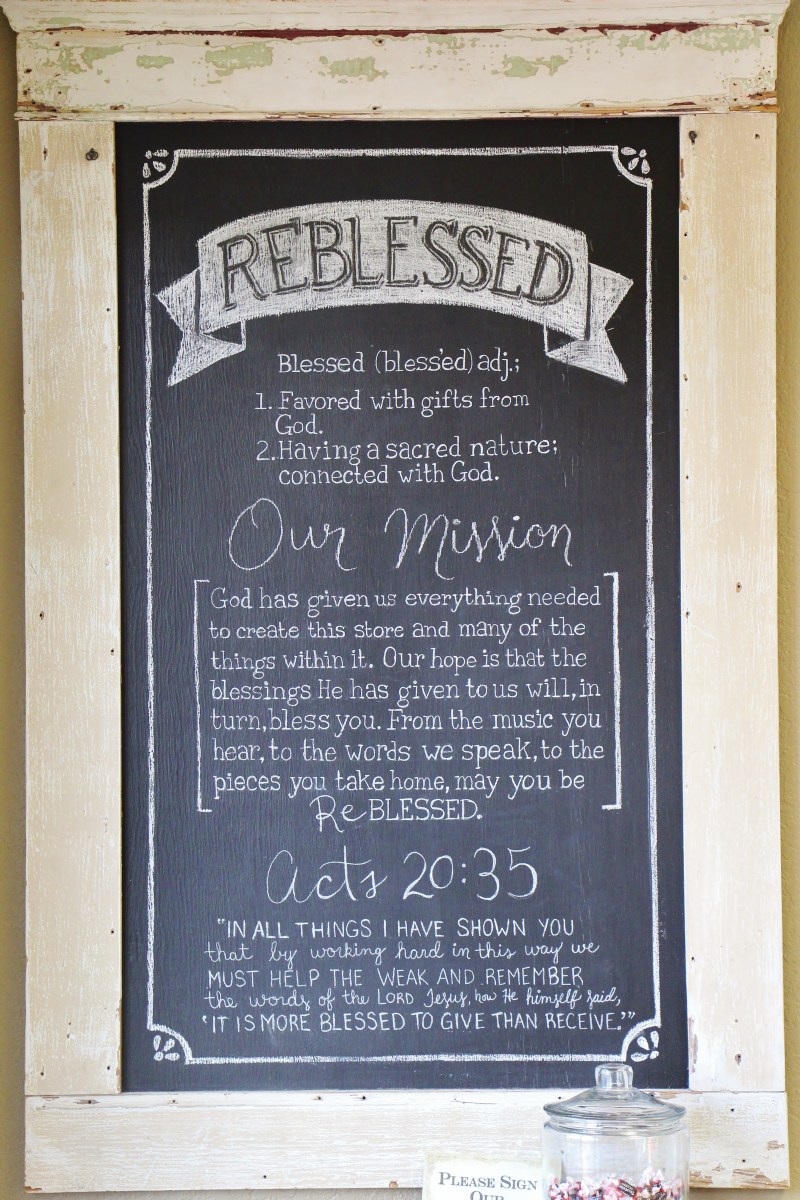 REBLESSED
Blessed (bless'ed) adj.;
1. Favored with gifts from
God.
2. Having a sacred nature;
connected with God.
Our Mission
God has given us everything needed
to create this store and many of the
things within it. Our hope is that the
blessings He has given to us will, in
turn, bless you. From the music you
hear, to the words we speak, to the
pieces you take home, may you be
ReBLESSED.
Acts 20:35
"IN ALL THINGS I HAVE SHOWN YOU
that by working hard in this way we
MUST HELP THE WEAK AND REMEMBER
the words of the LORD Jesus, how He himself said,
'IT IS MORE BLESSED TO GIVE THAN RECEIVE.'"
PLEASE SIGN
OUR